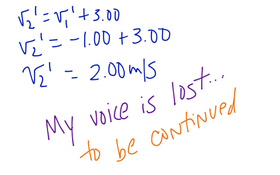 v₂' = v₁' + 3.00
v₂' = -1.00 + 3.00
v₂' = 2.00 m/s
My voice is lost...
to be continued